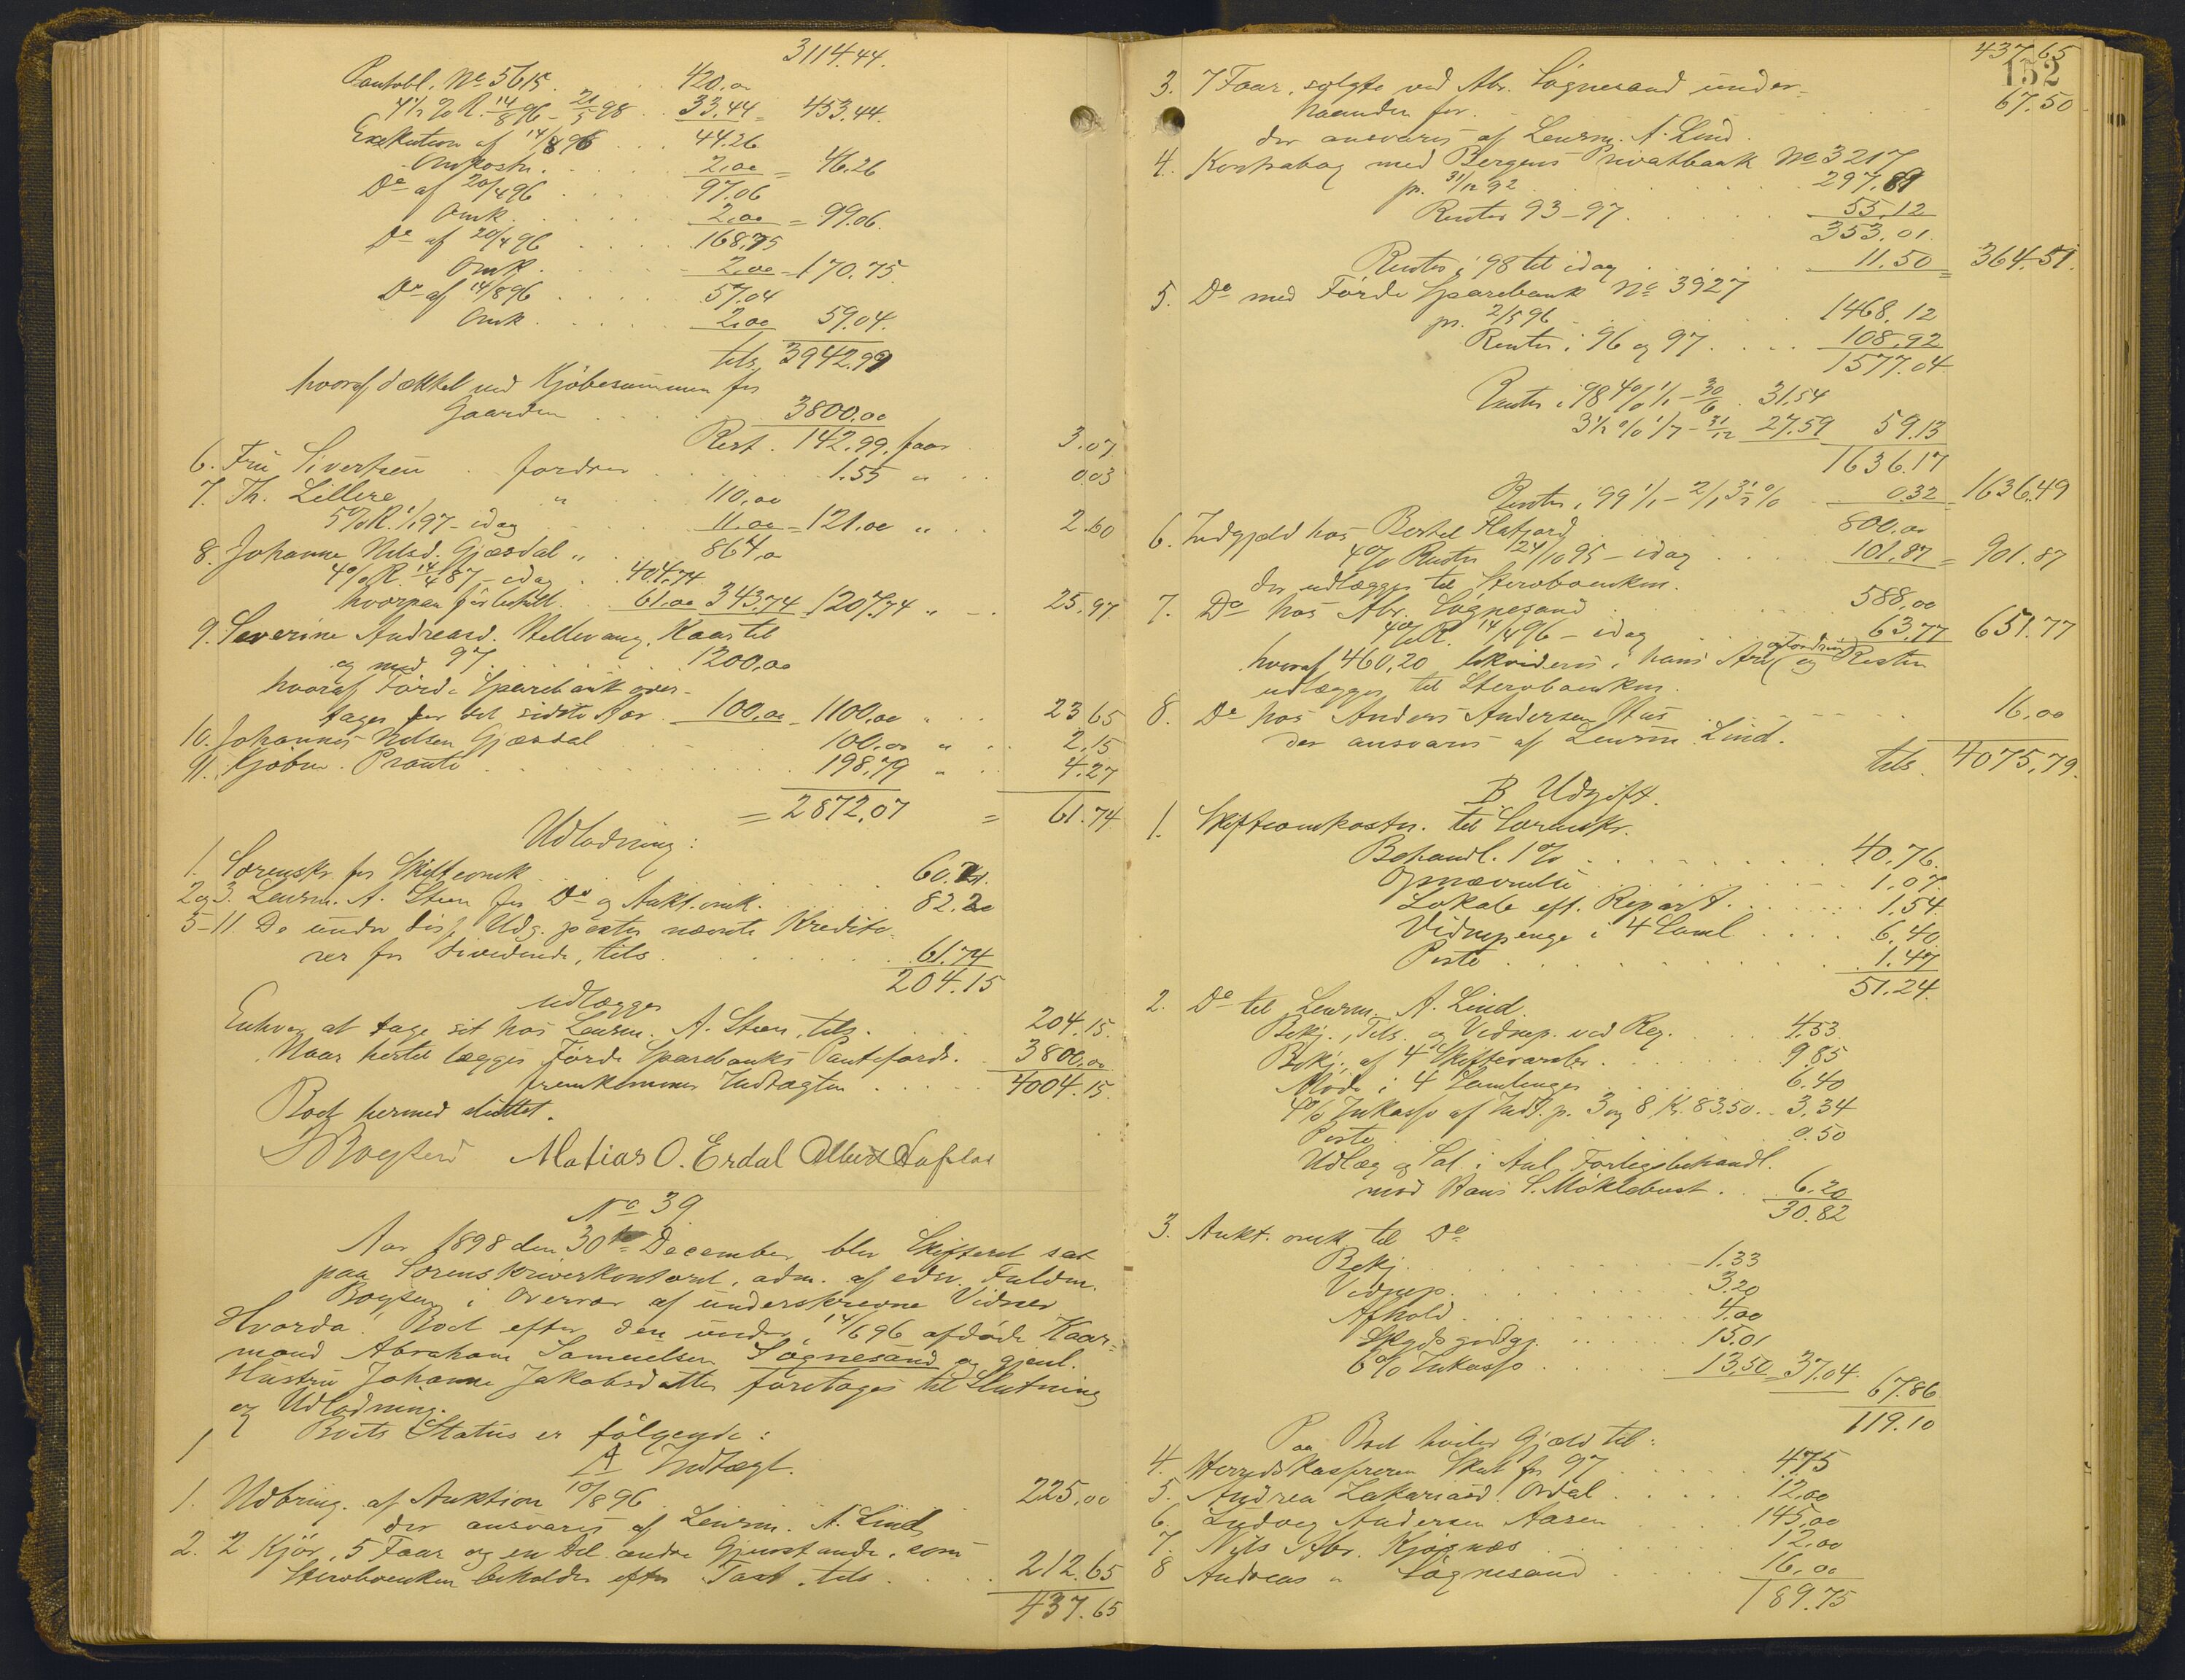 3114.44.
Pantobl. No 5615 . . . 420,00
4½ % R. 14/8 96 - 21/5 98 . . 33.44 = 453.44.
Exekution af 14/8 96 . . . 44.26
Omkostn. . . . 2,00 = 46.26
Do af 20/4 96 . . . 97.06
Omk. . . . 2,00 = 99.06.
Do af 20/4 96 . . . 168.75
Omk. . . . 2,00 - 170.75.
Do af 14/8 96 . . . 57.04
Omk. . . . 2,00 59.04.
tils. 3942.99
hvoraf dækket ved Kjøbesummen for
Gaarden . . . 3800.00
Rest . 142.99. faar . 3.07
6. Fru Sivertsen . fordrer . . . 1.55 " . . 0.03
7. Th. Lillere " 110,00
5% R. 1/1 97 - idag . . 11.00 = 121.00 " . . 2.60
8. Johanne Nilsd. Gjæsdal " . 864,0
4% R. 14/4 87 - idag . 404.74
hvorpaa før betalt . 61,00 343.74 1207.74 " - . 25.97
9. Severine Andreasd. Hellevang, Kaar til
og med 97 . . . 1200,00
hvoraf Førde Sparebank over-
tager for det sidste Aar . 100,00 - 1100,00 " . . 23.65
10. Johannes Nilsen Gjæsdal . . . 100.00 " . . 2.15
11. Kjøbm. Prante . . . 198.79 " . . 4.27
= 2872.07 = 61.74
Udlodning:
1. Sorenskr. for Skifteomk . . . 60.21.
2 og 3. Lensm. A. Steen for Do og Aukt.omk. . . . 82.20
5-11 De under disse Udg. poster nævnte Kredito-
rer for Dividende, tils. . . . 61.74
204.15
udlægges
Enhver at tage sit hos Lensm. A. Steen, tils. . . . 204.15.
Naar hertil lægges Førde Sparebanks Pantefordr. . . 3800.00
fremkommer Indtægten . . . 4004.15.
Boet hermed sluttet.
Matias O. Erdal
No 39
Aar 1898 den 30te December blev Skifteret sat
paa Sorenskriverkontoret, adm. af edsv. Fuldm.
Boysen i Overvær af underskrevne Vidner
Hvorda! Boet efter den under 14/6 96 afdøde Kaar-
mand Abraham Samuelsen Søgnesand og gjenl.
Hustru Johanne Jakobsdatter foretages til Slutning
og Udlodning.
Boets Status er følgende:
A Indtægt.
1. Udbring. af Auktion 10/8 96 . . . 225,00
der ansvares af Lensm. A. Lind
2. 2 Kjør, 5 Faar og en Del andre Gjenstande, som
Stervboenken beholder efter Taxt, tils. . . . 212.65
437.65
437.65
152
3. 7 Faar, solgte ved Abr. Søgnesand under-
haanden for . . . 67.50
der ansvares af Lensm. A. Lind.
4. Kontrabog med Bergens Privatbank No 3217
pr. 31/12 92 . . . 297.89
Renter 93-97 . . . 55.12
353.01.
Renter i 98 til idag . . . 11.50 = 364.51.
5. Do med Førde Sparebank No 3927
pr. 2/5 96 . . . 1468.12
Renter i 96 og 97 . . . 108.92
1577.04
Renter i 98 4% 1/1 - 30/6 . 31.54
3½ % 1/7 - 31/12 27.59 59.13
1636.17
Renter i 99 1/1 - 2/1 3½ % . 0.32 = 1636.49
6. Indgjæld hos Bertel Hafjord . . . 800.00
4% Renter 24/10 95 - idag . . . 101.87 = 901.87
der udlægges til Stervboenken.
7. Do hos Abr. Søgnesand . . . 588,00
4% R. 14/4 96 - idag . . . 63.77 651.77
hvoraf 460.20 likvideres i hans Arv og Resten
udlægges til Stervboenken.
8. Do hos Anders Andersen Hus . . . 16,00
der ansvares af Lensm. Lind.
tils. 4075.79.
B Udgift.
1. Skifteomkostn. til Sorenskr.
Behandl. 1% . . . 40,76.
Opnævnelse . . . 1,07.
Lokale eft. Repart. . . . 1,54.
Vidnepenge i 4 Saml . . . 6,40.
Porto . . . 1.47
51.24.
2. Do til Lensm. A. Lind.
Bekj., Tils. og Vidnep. ved Reg. . . . 4.53
Bekj. af 4 Skiftesamlr. . . . 9.85
Møde i 4 Samlinger . . . 6.40
4% Inkasso af Indt. p. 3 og 8, Kr. 83.50 . . 3.34
Porto . . . 0.50
Udlæg og Sal. i Anl. Forligsbehandl.
mod Hans S. Møklebust . . 6.20
30.82
3. Aukt. omk. til Do
Bekj. . . . 1.33
Vidnep. . . . 3.20
Afhold . . . 4.00
Skydsgodtgj. . . . 15.01
6% Inkasso . . . 13.50 = 37.04. 67.86
119.10
Paa Boet hviler Gjæld til:
4. Herredskassereren Skat for 97 . . . 4.75
5. Andrea Zakariasd. Ordal . . . 12,00
6. Ludvig Andersen Aasen . . . 145,00
7. Nils Abr. Kjøsnæs . . . 12,00
8 Andreas " Søgnesand . . . 16,00
189.75